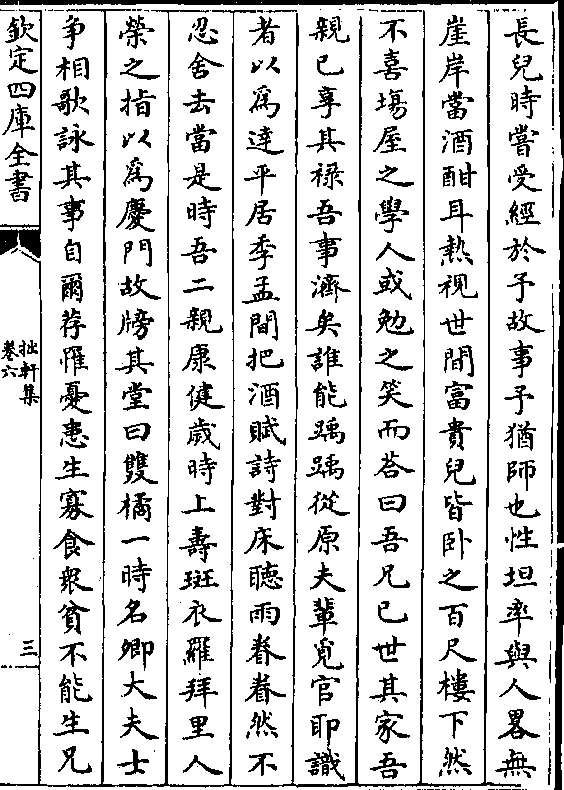 長兒時嘗受經於予故事予猶師也性坦率與人畧無
崖岸當酒酣耳熱視世間富貴兒皆卧之百尺樓下然
不喜塲屋之學人或勉之笑而荅曰吾兄已世其家吾
親已享其祿吾事濟矣誰能踽踽從原夫輩覓官耶識
者以爲達平居季孟間把酒賦詩對床聽雨眷眷然不
忍舍去當是時吾二親康健歲時上壽斑衣羅拜里人
榮之指以爲慶門故牓其堂曰雙橘一時名卿大夫士
争相歌詠其事自爾荐罹憂患生寡食衆貧不能生兄
欽定四庫全書
拙軒集
卷六
三